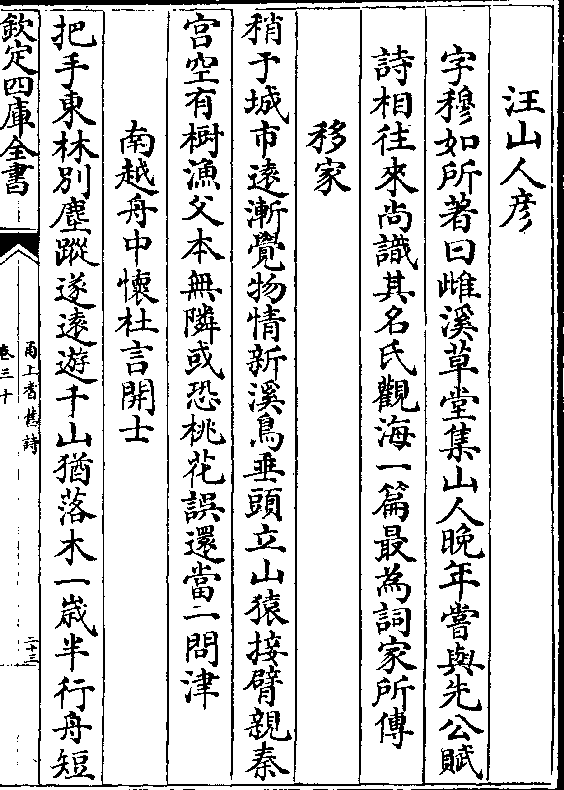 汪山人彦
字穆如所著曰雎溪草堂集山人晚年嘗與先公賦
詩相往來尚識其名氏觀海一篇最為詞家所傳
移家
稍予城市遠漸覺物情新溪鳥垂頭立山猿接臂親秦
宫空有樹漁父本無隣或恐桃花誤還當一問津
南越舟中懷杜言開士
把手東林别塵蹤遂遠遊千山猶落木一嵗半行舟短
欽定四庫全書
甬上耆舊詩
卷三十
二十三